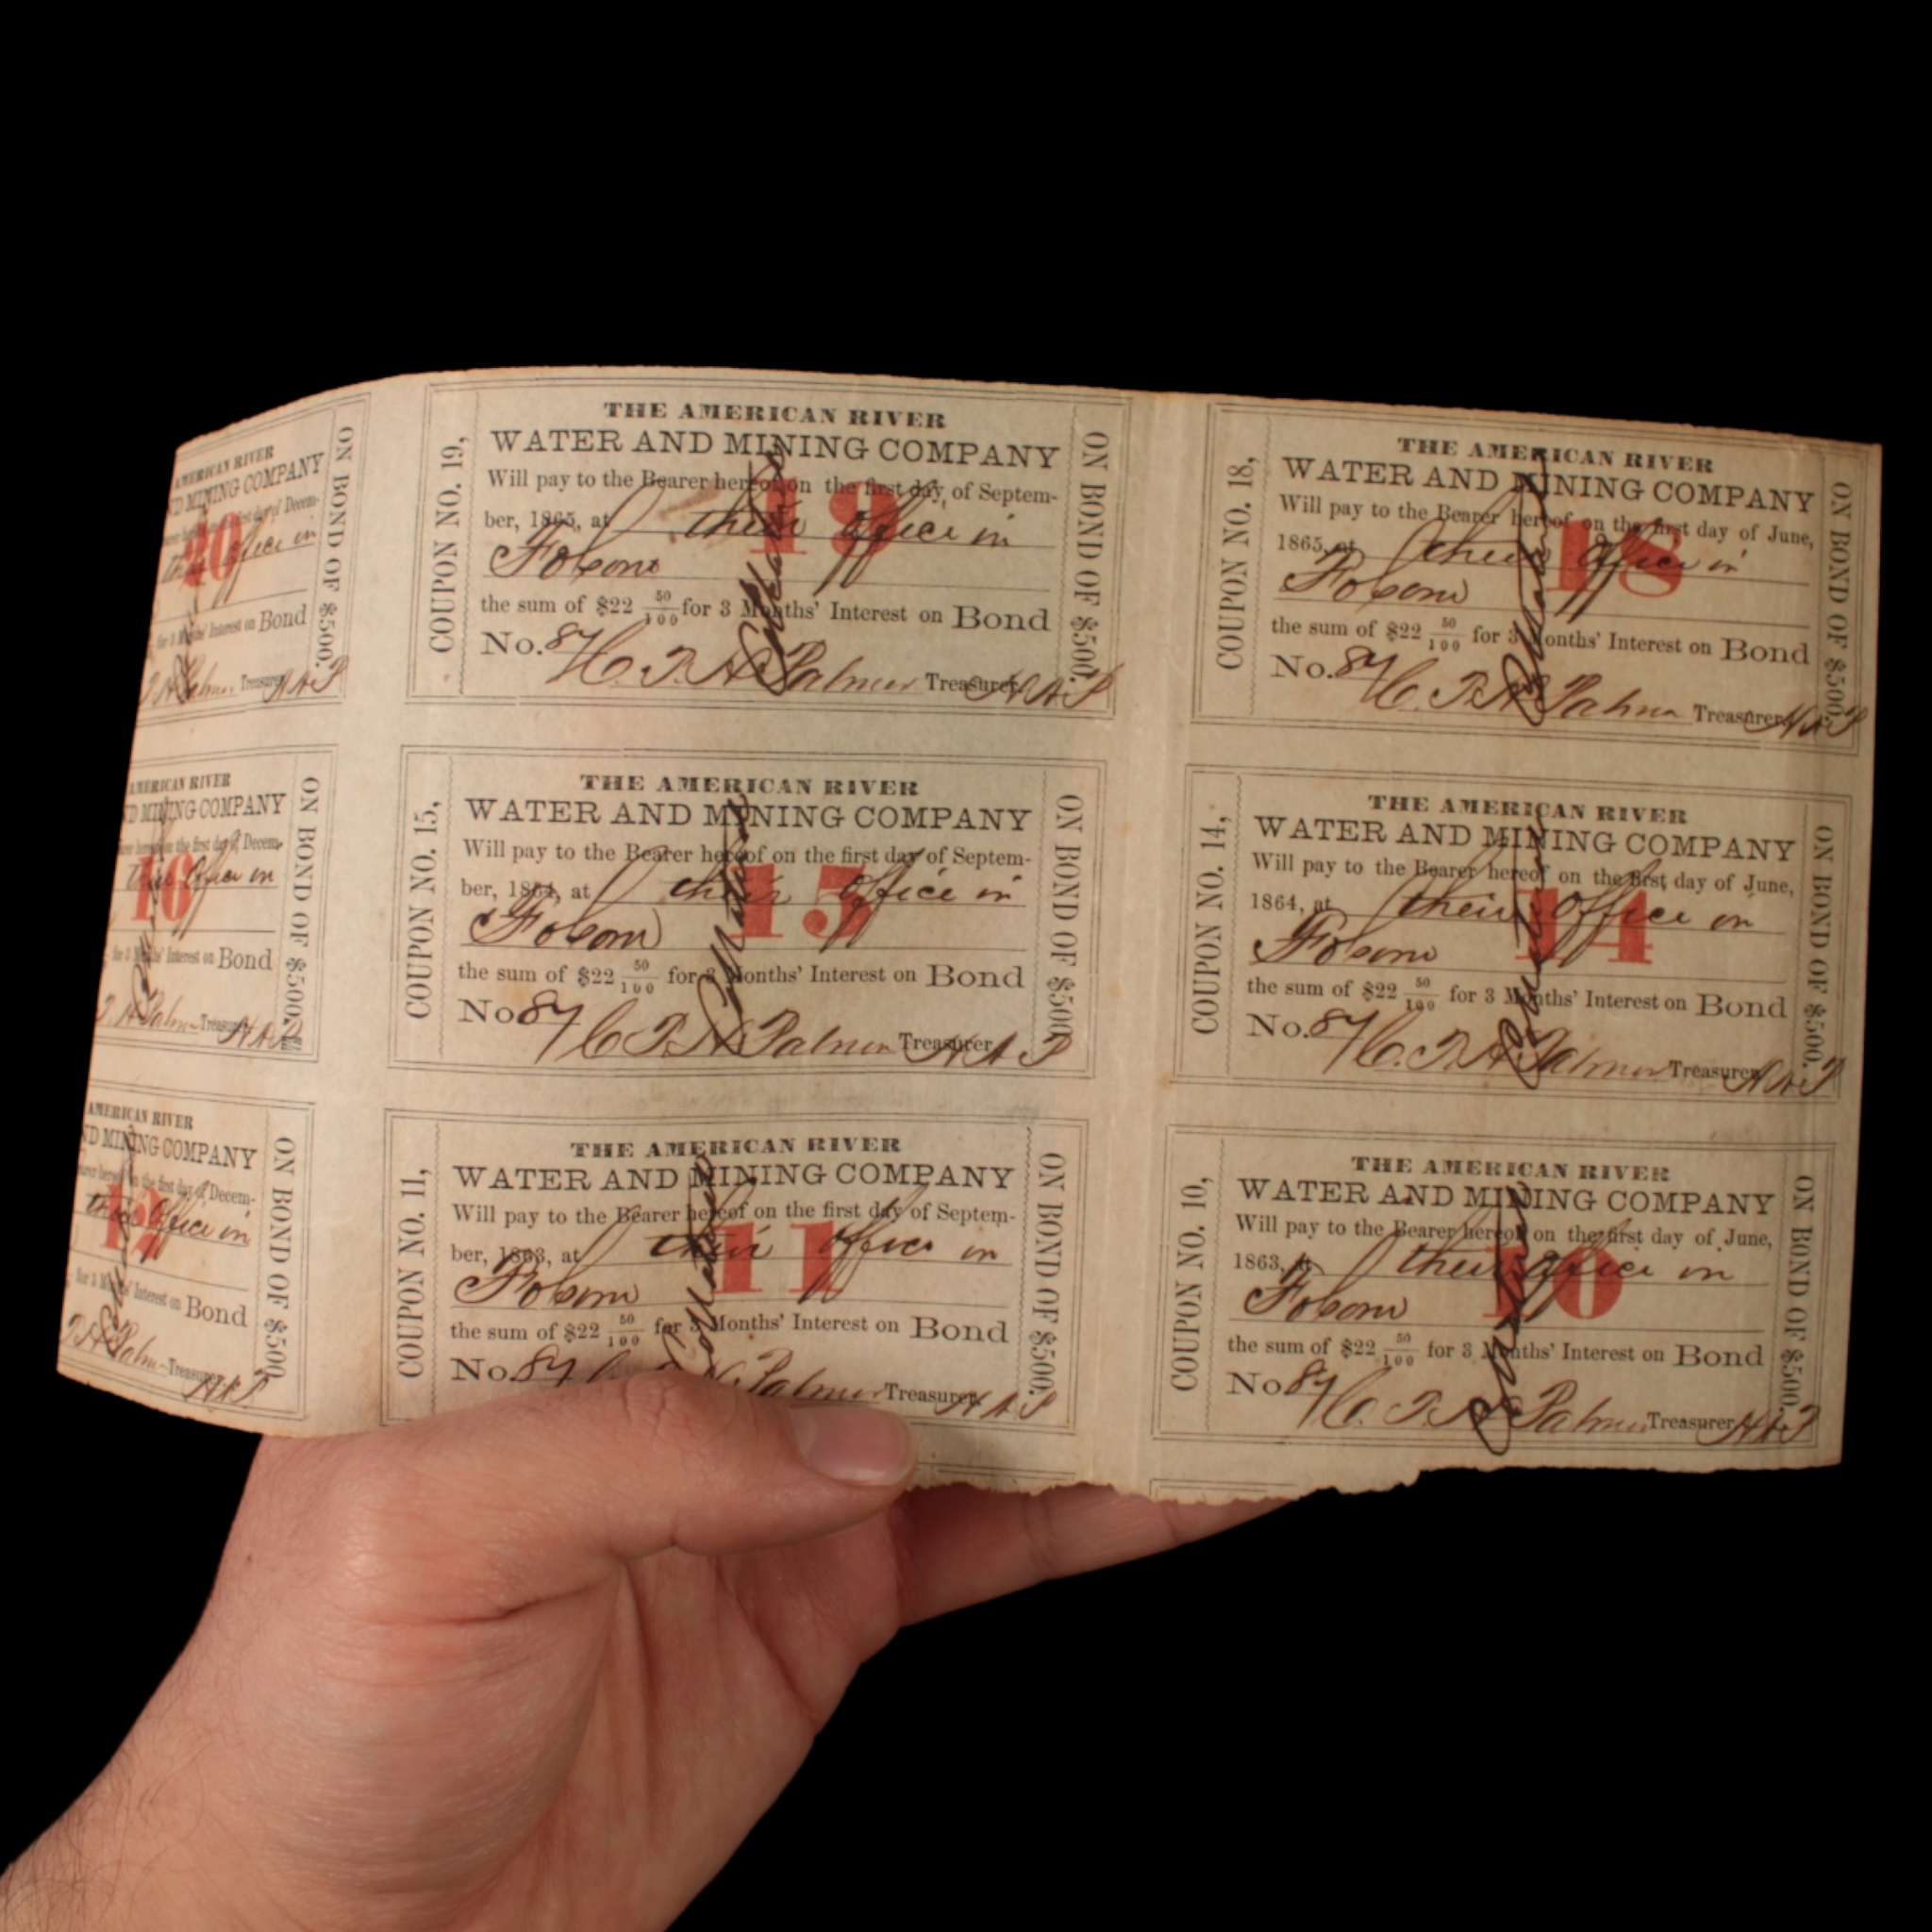 AMERICAN RIVER
ND MINING COMPANY
first day of Decem-
their office in
20
for 3 Months' Interest on Bond
Treasurer H A P
ON BOND OF $500.
COUPON NO. 19,
THE AMERICAN RIVER
WATER AND MINING COMPANY
Will pay to the Bearer hereof on the first day of Septem-
ber, 1865, at their office in
19
Folsom
the sum of $22 50/100 for 3 Months' Interest on Bond
No. 87 Palmer Treasurer H A P
ON BOND OF $500.
COUPON NO. 18,
THE AMERICAN RIVER
WATER AND MINING COMPANY
Will pay to the Bearer hereof on the first day of June,
1865, at their office in
18
Folsom
the sum of $22 50/100 for 3 Months' Interest on Bond
No. 87 Palmer Treasurer H A P
ON BOND OF $500.
AMERICAN RIVER
ND MINING COMPANY
on the first day of Decem-
their office in
16
for 3 Months' Interest on Bond
Treasurer H A P
ON BOND OF $500.
COUPON NO. 15,
THE AMERICAN RIVER
WATER AND MINING COMPANY
Will pay to the Bearer hereof on the first day of Septem-
ber, 1864, at their office in
15
Folsom
the sum of $22 50/100 for 3 Months' Interest on Bond
No. 87 Palmer Treasurer H A P
ON BOND OF $500.
COUPON NO. 14,
THE AMERICAN RIVER
WATER AND MINING COMPANY
Will pay to the Bearer hereof on the first day of June,
1864, at their office in
14
Folsom
the sum of $22 50/100 for 3 Months' Interest on Bond
No. 87 Palmer Treasurer H A P
ON BOND OF $500.
AMERICAN RIVER
ND MINING COMPANY
on the first day of Decem-
their office in
12
for 3 Months' Interest on Bond
Treasurer H A P
ON BOND OF $500.
COUPON NO. 11,
THE AMERICAN RIVER
WATER AND MINING COMPANY
Will pay to the Bearer hereof on the first day of Septem-
ber, 1863, at their office in
11
Folsom
the sum of $22 50/100 for 3 Months' Interest on Bond
No. 87 Palmer Treasurer H A P
ON BOND OF $500.
COUPON NO. 10,
THE AMERICAN RIVER
WATER AND MINING COMPANY
Will pay to the Bearer hereof on the first day of June,
1863, at their office in
10
Folsom
the sum of $22 50/100 for 3 Months' Interest on Bond
No. 87 Palmer Treasurer H A P
ON BOND OF $500.